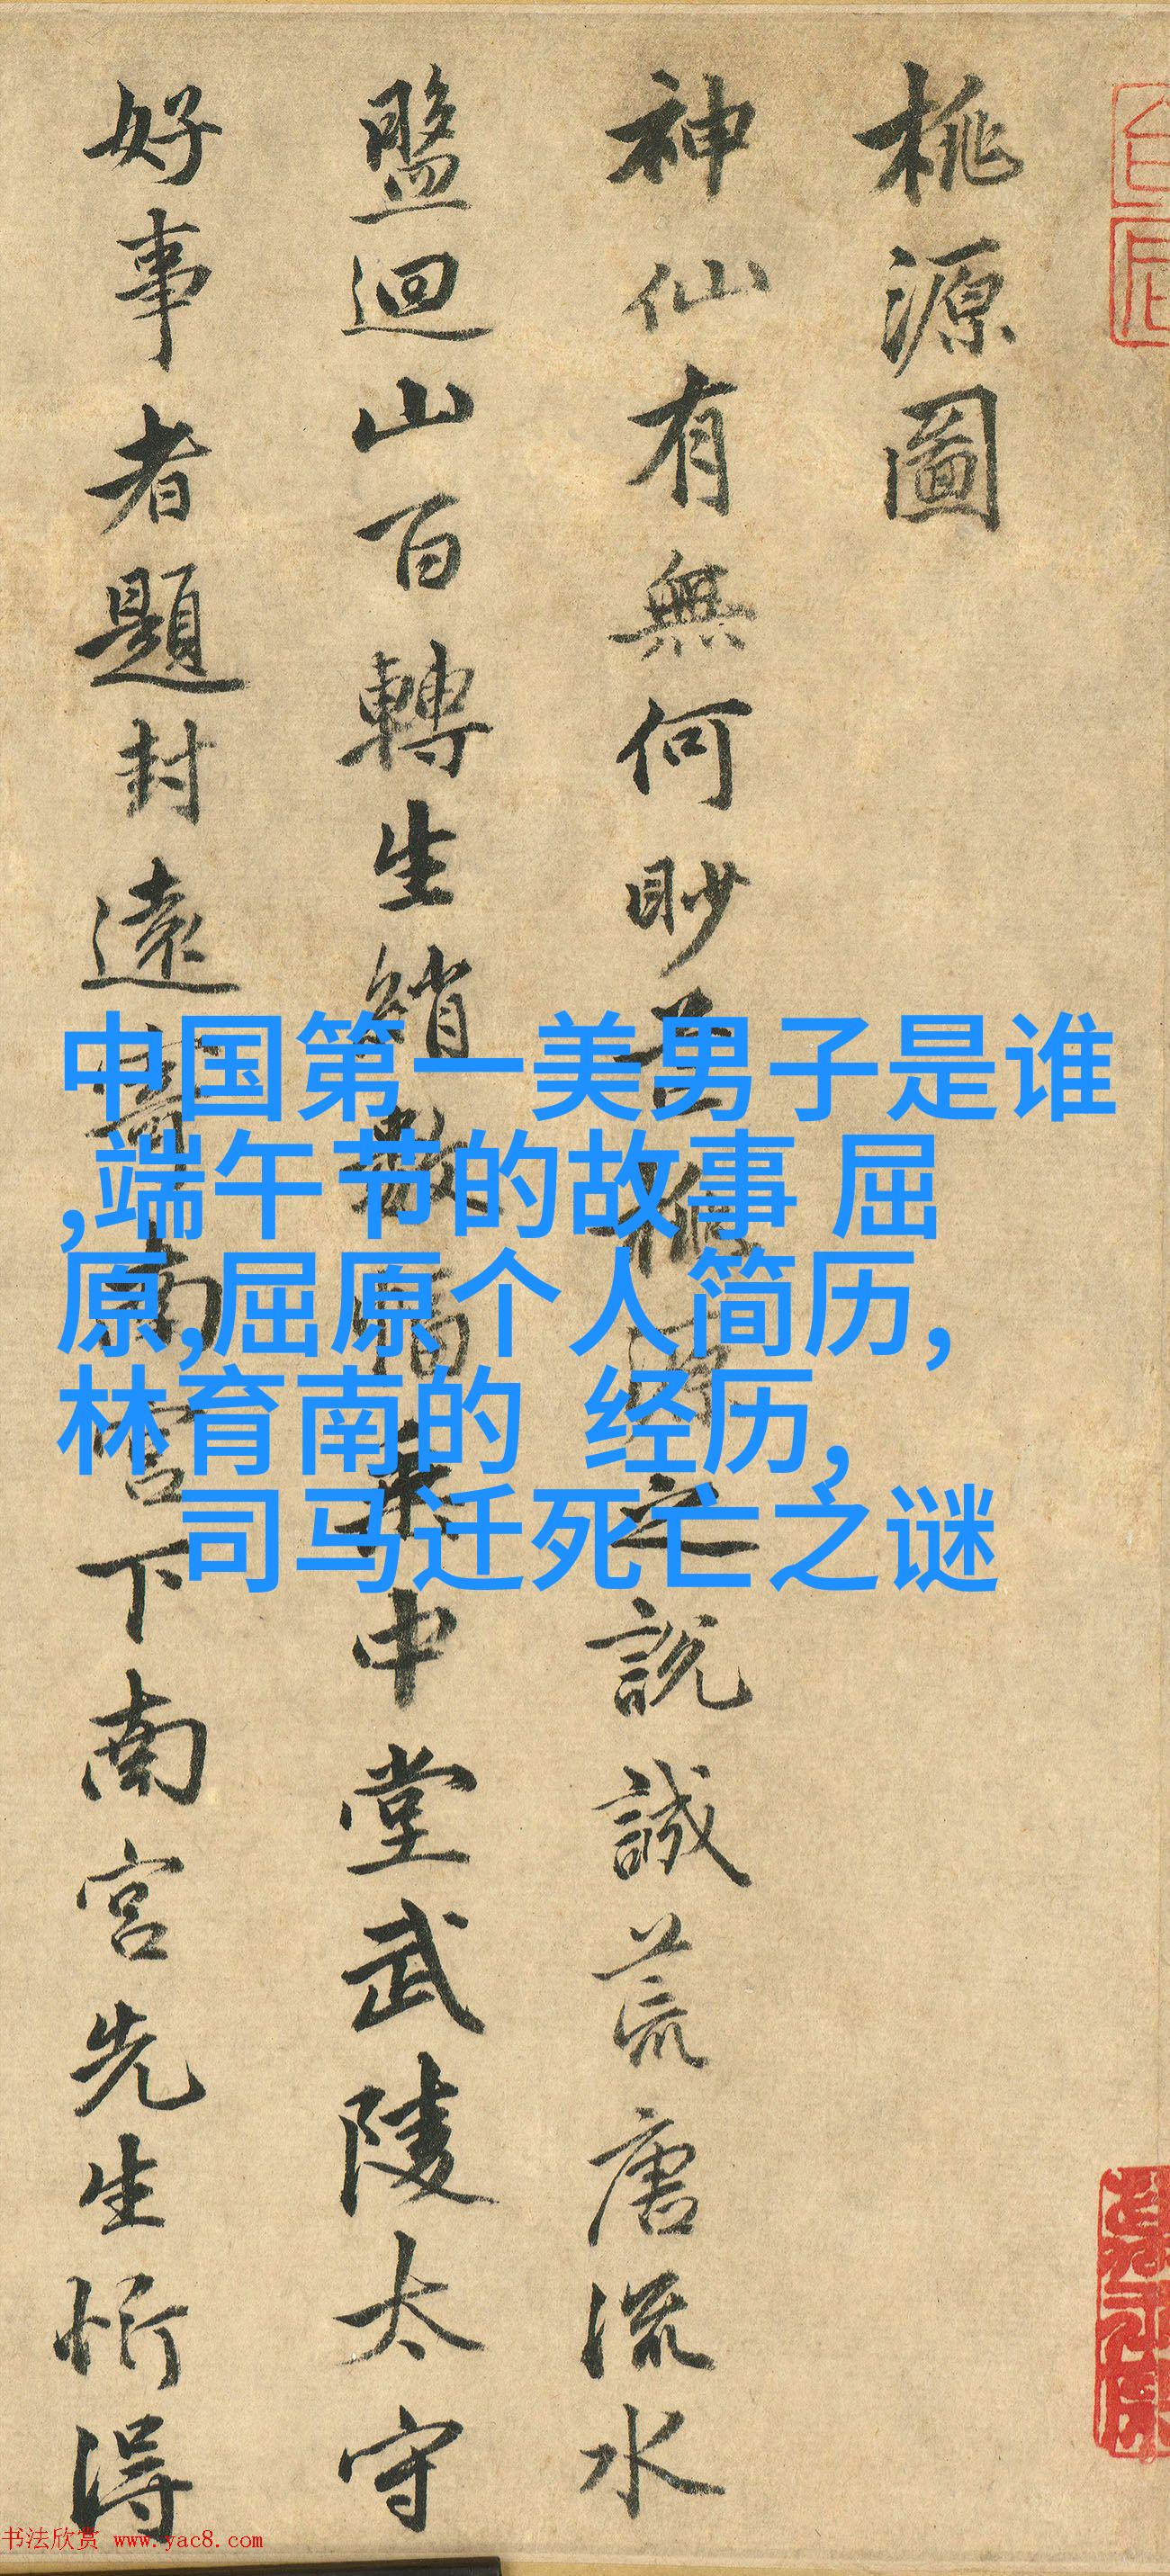 桃源圖
神仙有無何眇芒桃源之説誠荒唐流水
盤迴山百轉生綃數幅垂中堂武陵太守
好事者題封遠寄南宮下南宮先生忻得
中国第一美男子是谁
,端午节的故事 屈
原,屈原个人简历,
林育南的 经历,
司马迁死亡之谜
书法欣赏 www.yac8.com